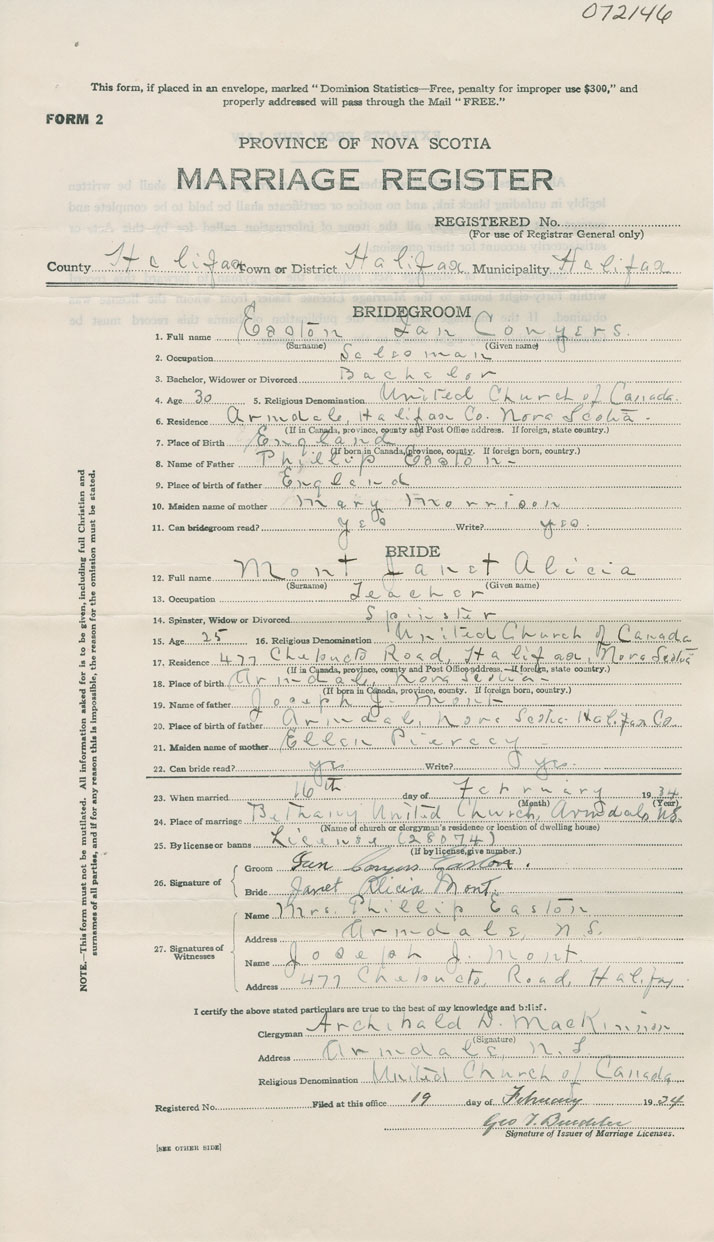 072146
This form, if placed in an envelope, marked "Dominion Statistics—Free, penalty for improper use $300," and
properly addressed will pass through the Mail "FREE."
FORM 2
PROVINCE OF NOVA SCOTIA
MARRIAGE REGISTER
REGISTERED No.
(For use of Registrar General only)
County Halifax Town or District Halifax Municipality Halifax
BRIDEGROOM
1. Full name Easton Ian Conyers.
(Surname) (Given name)
2. Occupation Salesman
3. Bachelor, Widower or Divorced Bachelor
4. Age 30 5. Religious Denomination United Church of Canada.
6. Residence Armdale, Halifax Co. Nova Scotia.
(If in Canada, province, county and Post Office address. If foreign, state country.)
7. Place of Birth England
(If born in Canada, province, county. If foreign born, country.)
8. Name of Father Phillip Easton
9. Place of birth of father England
10. Maiden name of mother Mary Morrison
11. Can bridegroom read? yes Write? yes.
BRIDE
12. Full name Mont Janet Alicia
(Surname) (Given name)
13. Occupation Teacher
14. Spinster, Widow or Divorced Spinster
15. Age 25 16. Religious Denomination United Church of Canada
17. Residence 477 Chebucto Road, Halifax, Nova Scotia
(If in Canada, province, county and Post Office address.—If foreign, state country.)
18. Place of birth Armdale, Nova Scotia
(If born in Canada, province, county. If foreign born, country.)
19. Name of father Joseph J. Mont
20. Place of birth of father Armdale, Nova Scotia Halifax Co.
21. Maiden name of mother Ellen Piercey
22. Can bride read? yes Write? yes.
23. When married 16th day of February 1934
(Month) (Year)
24. Place of marriage Bethany United Church, Armdale, N.S.
(Name of church or clergyman's residence or location of dwelling house)
25. By license or banns License (28074)
(If by license, give number.)
26. Signature of
Groom Ian Conyers Easton.
Bride Janet Alicia Mont.
27. Signatures of Witnesses
Name Mrs. Phillip Easton
Address Armdale, N.S.
Name Joseph J. Mont
Address 477 Chebucto, Road, Halifax.
I certify the above stated particulars are true to the best of my knowledge and belief.
Clergyman Archibald D. MacKinnon
(Signature)
Address Armdale, N.S.
Religious Denomination United Church of Canada
Registered No. Filed at this office 19 day of February 1934
Geo
Signature of Issuer of Marriage Licenses.
[SEE OTHER SIDE]
NOTE.—This form must not be mutilated. All information asked for is to be given, including full Christian and
surnames of all parties, and if for any reason this is impossible, the reason for the omission must be stated.